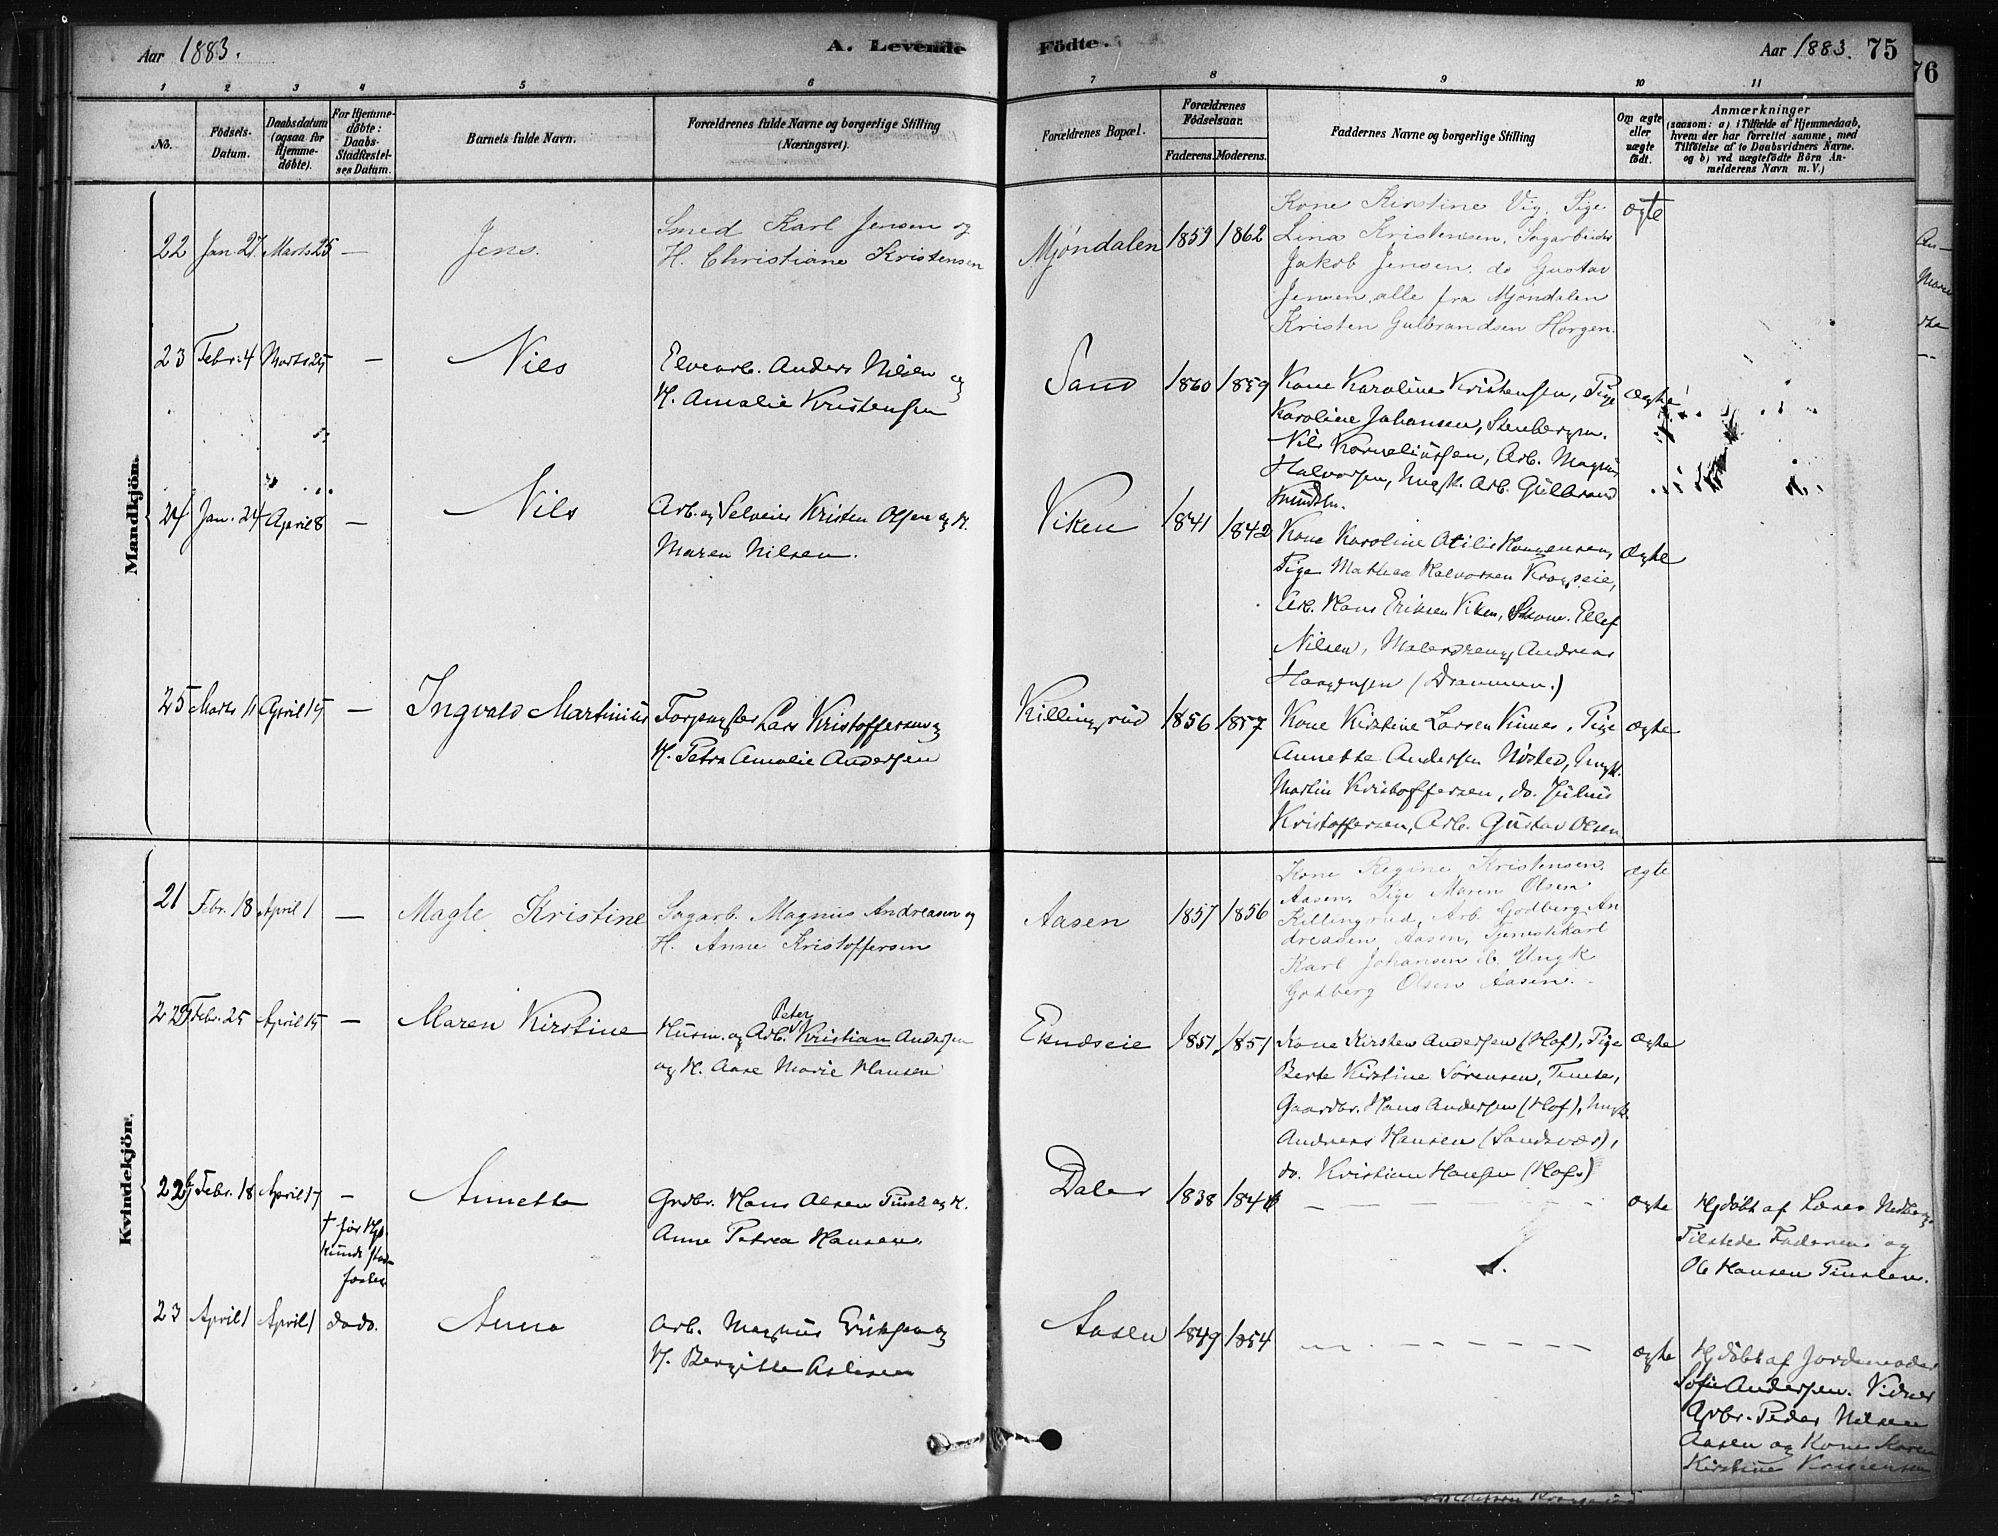 Aar 1883. A. Levende
Födte. Aar 1883. 75
76
1 2 3 4 5 6
7 8 9 10 11
No.
Födsels-
Datum.
Daabsdatum
(ogsaa for
Hjemme-
döbte).
For Hjemme-
döbte:
Daabs-
Stadfæstel-
ses Datum.
Barnets fulde Navn.
Forældrenes fulde Navne og borgerlige Stilling
(Næringsvei).
Forældrenes Bopæl.
Forældrenes
Födselsaar.
Faderens. Moderens.
Faddernes Navne og borgerlige Stilling
Om ægte
eller
uægte
født.
Anmærkninger
(saasom: a) i Tilfælde af Hjemmedaab,
hvem der har forrettet samme, med
Tilföielse af to Daabsvidners Navne.
og b) ved uægtefödte Börn An-
melderens Navn m. V.)
Mandkjön.
22 Jan. 27 Marts 25 — Jens.
Smed Karl Jensen og
H. Christiane Kristensen
Mjøndalen 1859 1862
Kone Kirstine Vig. Pige
Lina Kristensen, Sagarbeider
Jakob Jensen. do Gustav
Jensen, alle fra Mjøndalen
Kristen Gulbrandsen Horgen.
ægte
23 Febr. 4 Marts 25 — Nils
Elvearb. Anders Nilsen og
H. Amalie Kristensen
Sand 1860 1859
Kone Karoline Kristensen, Pige
Karoline Johansen, Stenbergm.
Nils Korneliussen, Arb. Magnus
Halvorsen, Ungk. Arb. Gulbrand
Knudsen.
Ægte
24 Jan. 24 April 8 — Nils
Arb. og Selveier Kristen Olsen og H.
Maren Nilsen.
Viken 1841 1842
Kone Karoline Otilie Haagensen,
Pige Mathea Halvorsen Kragseie,
Arb. Hans Eriksen Viken, Skom. Ellef
Nilsen, Malerdreng Andreas
Haagensen (Drammen.)
Ægte
25 Marts 11 April 15 — Ingvald Martinius
Torpagster Lars Kristoffersen og
H. Petra Amalie Andersen
Killingrud 1856 1857
Kone Kirstine Larsen Kinnes, Pige
Annette Andersen Nøsted, Ungk.
Martin Kristoffersen, do. Julius
Kristoffersen, Arb. Gustav Olsen
ægte
Kvindekjön.
21 Febr. 18 April 1 — Magle Kristine
Sagarb. Magnus Andreasen og
H. Anne Kristoffersen
Aasen 1857 1856
Kone Regine Kristensen.
Aasen, Pige Maren Olsen
Killingrud, Arb Godberg An
dreasen Aasen, Tjenestekarl
Karl Johansen ib. Ungk
Godberg Olsen Aasen.
ægte
22 Febr. 25 April 15 — Maren Kirstine
Peter
Husm. og Arb. Kristian Andersen
og H. Aase Marie Hansen
Ekndseie 1851 1851
Kone Kirsten Andersen (Hof), Pige
Berte Kirstine Sørensen, Temte,
Gaardbr. Hans Andersen (Hof), Ungk.
Andreas Hansen (Sandsvær),
do. Kristian Hansen (Hof)
Ægte
22 Febr. 18 April 17 — Annette
† før Hjd.
kunde stad-
fæstes
Grdbr. Hans Olsen Tinsle og H.
Anne Petrea Hansen
Daler 1838
ægte
Hjdøbt af Lærer
Tilstede Faderen og
Ole Hansen Tinslen.
23 April 1 April 1 dodo. Anna
Arb. Magnus Eriksen og
H. Bergitte Aslesen
Aasen 1849 1854
ægte
Hjdøbt af Jordemoder
Sofie Andersen. Vidner
Grbr. Peder Nilsen
Aasen og Kone Karen
Kirstine